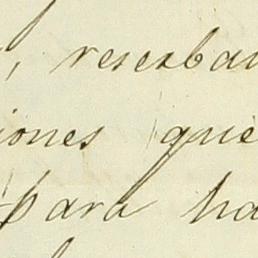 , reserbau
iones que
para ha